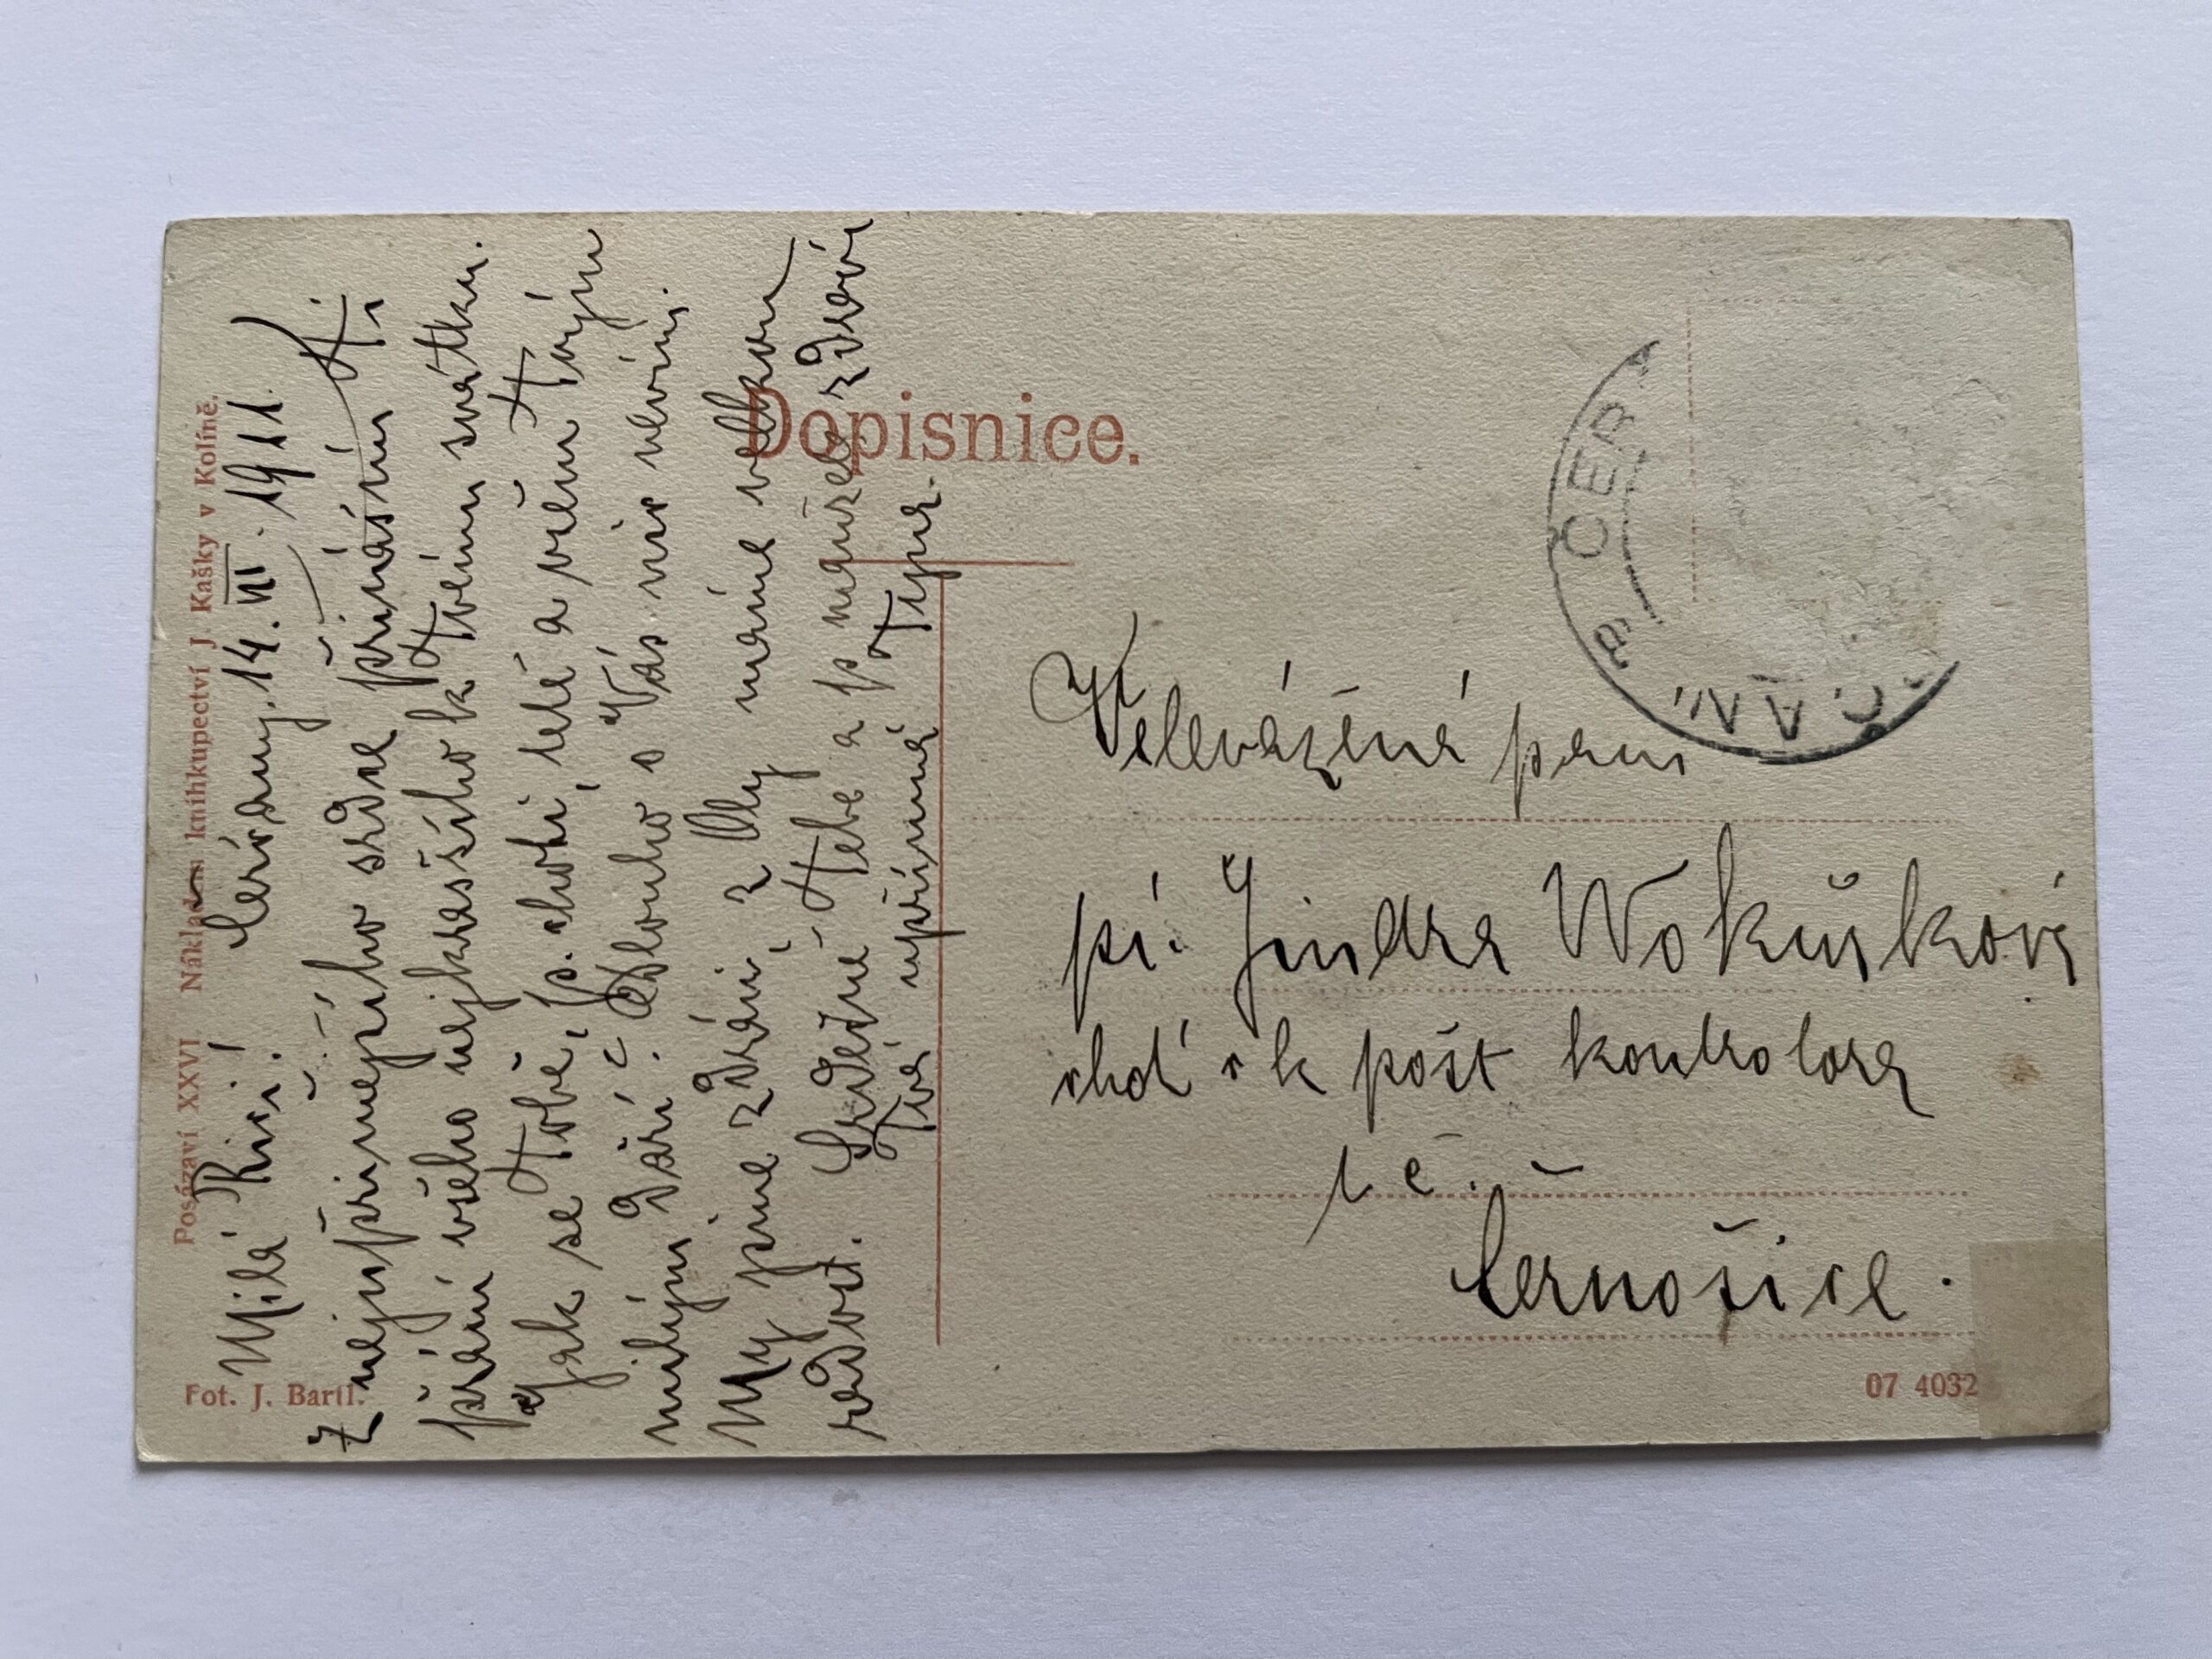 Posázaví XXVI. Nákladem knihkupectví J Kašky v Kolíně.
Fot. J. Bartl.
Milá 14. VII. 1911.
Z nejupřimnejšího srdce přinásím Ti
přání všeho nejkrasšího k Tvému svátku.
Jak se Tobě, p. choti, teté a všem Tvým
milým daří? Dlouho o Vás nic nevím.
My jsme zdrávi, z Olly máme velkou
radost. Srdečně Tebe a p manžela zdraví
Tvá upřímná
Dopisnice.
ČER
ČAN
Velevážená paní
pí. Jindra Wokurková
choť c k pošt kontrolora
Černošice.
07 4032